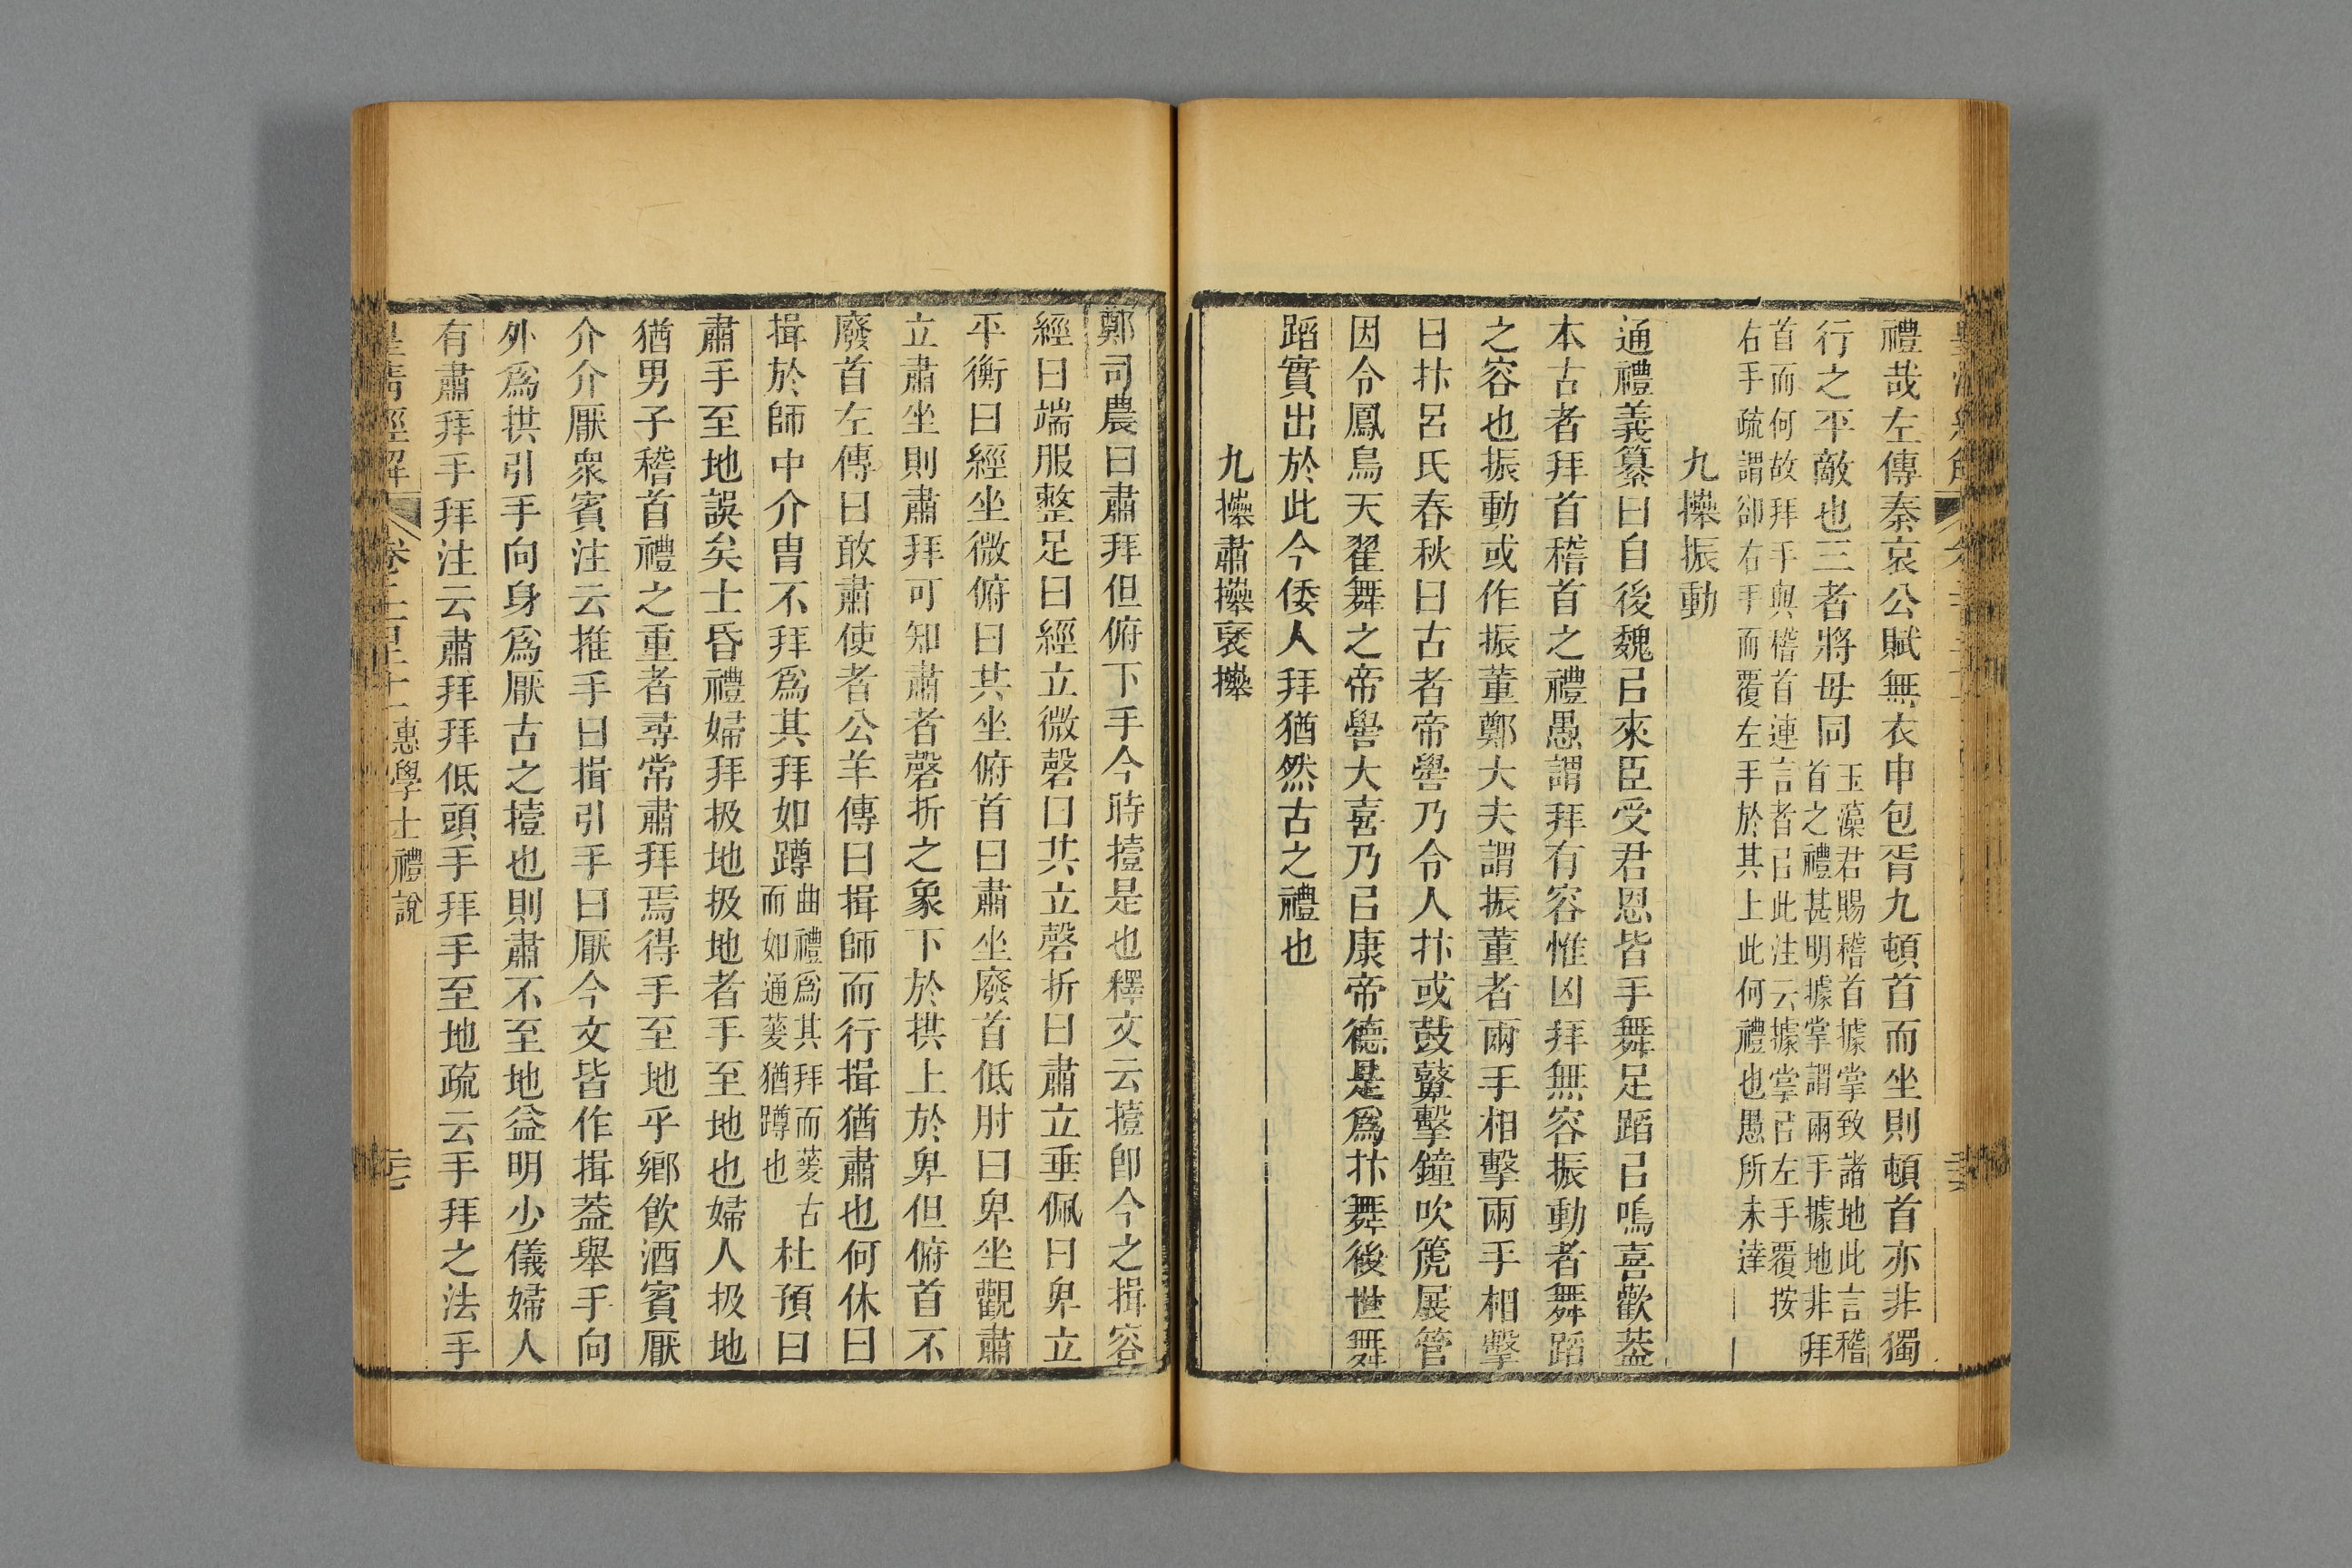 禮哉左傳秦哀公賦無衣申包胥九頓首而坐則頓首亦非獨
行之平敵也三者將毋同玉藻君賜稽首據掌致諸地此言稽
首之禮甚明據掌謂兩手據地非拜
首而何故拜手與稽首連言者㠯此注云據掌㠯左手覆按
右手疏謂卻右手而覆左手於其上此何禮也愚所未達
九𢷎振動
通禮義纂曰自後魏㠯來臣受君恩皆手舞足蹈㠯鳴喜歡葢
本古者拜首稽首之禮愚謂拜有容惟凶拜無容振動者舞蹈
之容也振動或作振董鄭大夫謂振董者兩手相擊兩手相擊
曰抃呂氏春秋曰古者帝嚳乃令人抃或鼓鼙擊鐘吹箎展管
因令鳳鳥天翟舞之帝嚳大喜乃㠯康帝德是爲抃舞後世舞
蹈實出於此今倭人拜猶然古之禮也
九𢷎肅𢷎褒𢷎
鄭司農曰肅拜但俯下手今時撎是也釋文云撎卽今之揖容
經曰端服整足曰經立微磬曰共立磬折曰肅立垂佩曰卑立
平衡曰經坐微俯曰共坐俯首曰肅坐廢首低肘曰卑坐觀肅
立肅坐則肅拜可知肅者磬折之象下於拱上於卑但俯首不
廢首左傳曰敢肅使者公羊傳曰揖師而行揖猶肅也何休曰
揖於師中介冑不拜爲其拜如蹲曲禮爲其拜而蓌古
而如通蓌猶蹲也杜預曰
肅手至地誤矣士昏禮婦拜扱地扱地者手至地也婦人扱地
猶男子稽首禮之重者尋常肅拜焉得手至地乎鄉飮酒賓厭
介介厭衆賓注云推手曰揖引手曰厭今文皆作揖葢舉手向
外爲拱引手向身爲厭古之撎也則肅不至地益明少儀婦人
有肅拜手拜注云肅拜拜低頭手拜手至地疏云手拜之法手
皇淸經解 惠學士禮說